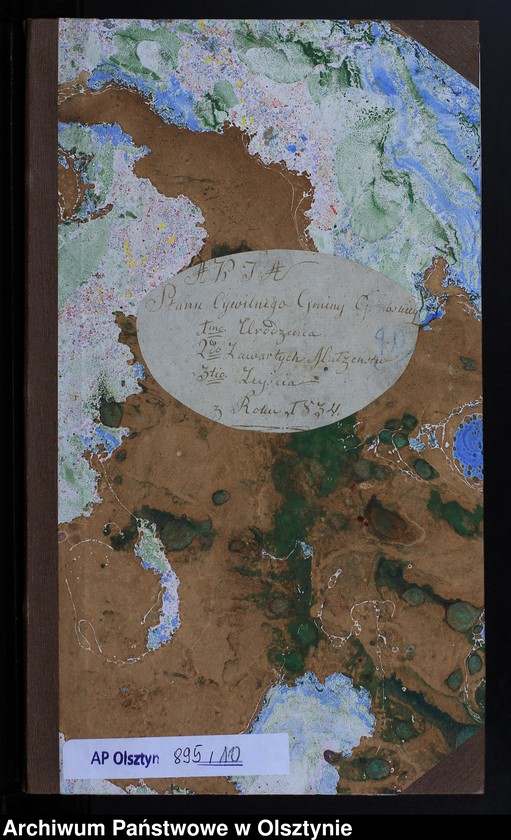 AKTA
Stanu Cywilnego Gminy
1mo Urodzenia
2do Zawartych Małżeństw
3tio Zejścia
z Roku 1834.
AP Olsztyn 895/10
Archiwum Państwowe w Olsztynie